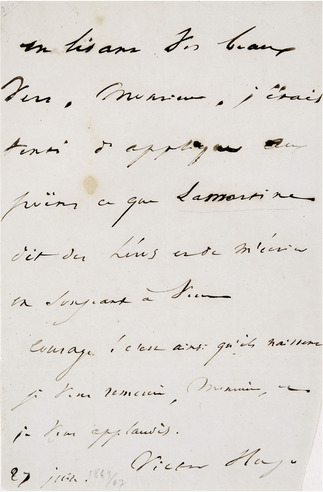 en lisant vos beaux
vers, Monsieur, j'étais
tenté d'appliquer aux
poëtes ce que Lamartine
dit des héros et de m'écrier
en songeant à vous
Courage ! c'est ainsi qu'ils naissent
je vous remercie, Monsieur, et
je vous applaudis.
Victor Hugo
27 juin.